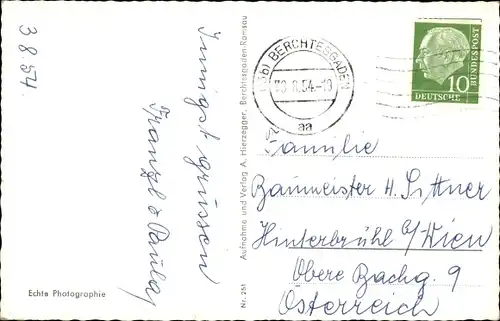 3.8.54.
Innigst grüssen
Franzl & Paula
Echte Photographie
Nr. 251
Aufnahme und Verlag A. Hierzegger, Berchtesgaden-Ramsau
BERCHTESGADEN
8.54.-19
aa
DEUTSCHE
BUNDESPOST
10
Familie
Baumeister H. Sittner
Hinterbrühl b/Wien
Obere Bachg. 9
Österreich